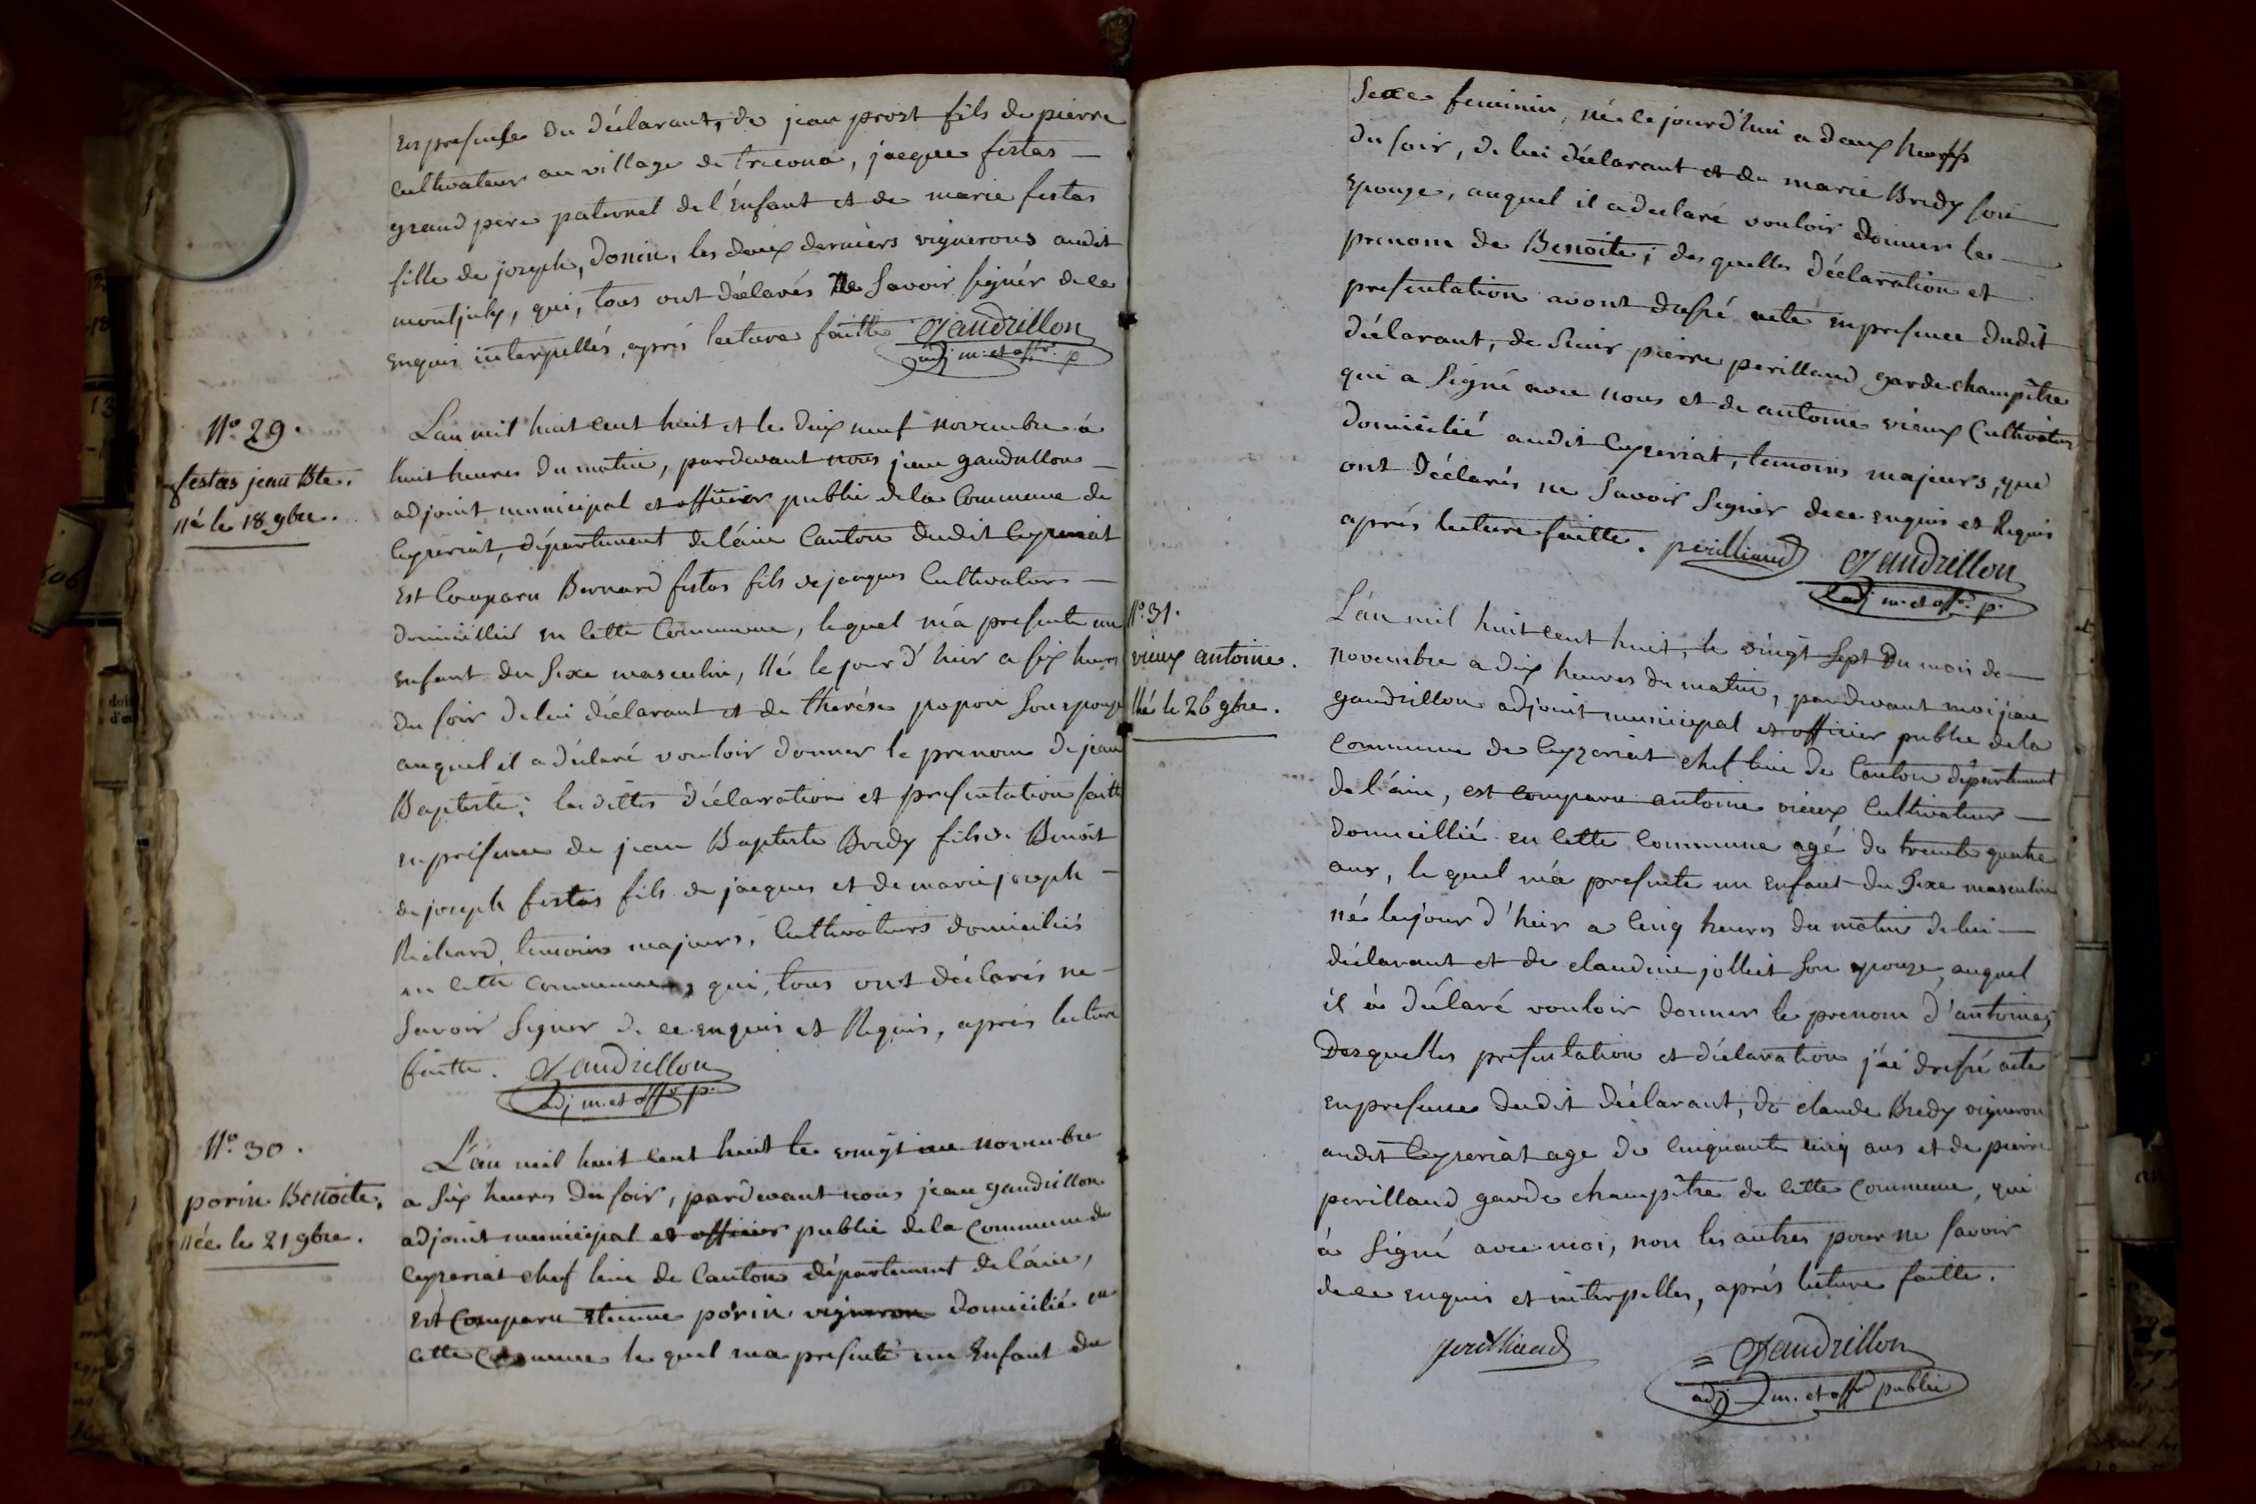 En presence du déclarant, de jean prost fils de pierre
Cultivateur au village de tricona, jacque festas
grand pere paternel de l'Enfant et de marie festas
fille de joseph, Donin, les deux derniers vignerons audit
montjuly, qui, tous ont déclarés ne Savoir signér de ce
enquis interpellés, aprés lecture faitte Gaudrillon
adj m. et offr. p
N.o 29.
festas jean Bte.
né le 18 9bre.
L'an mil huit cent huit et le dix neuf novembre á
huit heures du matin, pardevant nous jean gaudrillon
adjoint municipal et officier public de la Commune de
Ceyzeriat, département de l'áin Canton dudit Ceyzeriat
Est Comparu Bernard festas fils de jacques Cultivateur
domicillié en Cette Commune, lequel m'á presenté un
enfant du sexe masculin, né le jour d'hier a six heures
du soir de lui déclarant et de therése popon son epouze
auquel il a déclaré vouloir donner le prenom de jean
Baptiste; lesdittes déclaration et presentation faitte
en présence de jean Baptiste Bredy fils de Benoit
de joseph festas fils de jacques et de marie joseph
Richard, temoins majeurs, Cultivateurs domiciliés
en Cette Commune, qui, tous ont déclarés ne
Savoir Signer de ce enquis et Requis, aprés lecture
faitte. Gaudrillon
adj m. et offr p.
N.o 30.
porin Benoite,
née le 21 9bre.
L'án mil huit Cent huit le vingt une novembre
a six heures du soir, pardevant nous jean gaudrillon
adjoint municipal et officier public de la Commune de
Ceyzeriat chef lieu de Canton département de l'áin,
Est Comparu Etienne porin vigneron domicilié en
Cette Commune lequel ma presenté un Enfant du
Sexe feminin, né cejourd'hui a deux heures
du soir, de lui déclarant et de marie Bredy son
Epouze, auquel il a declaré vouloir donner le
prenom de Benoite; des quelles déclaration et
presentation avont dressé acte en presence dudit
déclarant, de Sieur pierre perilland garde champêtre
qui a Signé avec nous et de antoine vieux Cultivateur
domicilié audit Ceyzeriat, temoins majeurs, que
ont déclarés ne Savoir Signér de ce enquis et Requis
aprés lecture faitte. perilliand Gaudrillon
adj m. et offr. p.
N.o 31.
vieux antoine.
Né le 26 9bre.
L'án mil huit Cent huit, le vingt Sept du mois de
novembre a dix heures du matin, pardevant moi jean
gaudrillon adjoint municipal et officier public de la
Commune de Ceyzeriat chef lieu de Canton département
de l'áin, est Comparu antoine vieux Cultivateur
domicillié en Cette Commune agé de trente quatre
ans, le quel m'á presenté un Enfant du Sexe masculin
né le jour d'hier a Cinq heures du matin de lui
déclarant et de claudine jolliet son epouze, auquel
il á déclaré vouloir donner le prenom d'antoine;
Desquelles presentation et déclaration j'ái dressé acte
en presence dudit déclarant, de claude Bredy vigneron
audit Ceyzeriat age de Cinquante cinq ans et de pierre
perilland garde champêtre de Cette Commune, qui
á Signé avec moi, non les autres pour ne Savoir
de ce enquis et interpelles, aprés lecture faitte.
perilliand
= Gaudrillon
adj m. et offr public